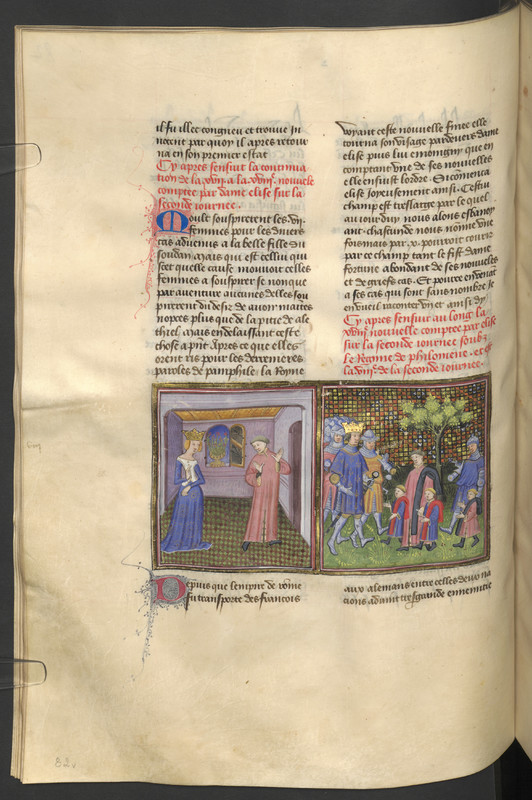 il fu illec congneu et trouve in
nocent par quoy il apres retour
na en son premier estat
Cy apres sensuit la continua
tion de la à la nouvele
comptee par dame elise sur la
seconde iournee.
Moult souspirerent les
femmes pour les divers
cas advenus a la belle fille du
soudan. Mais qui est cellui qui
scet quelle cause mouvoit celles
femmes a souspirer se non que
par aventure aucunes delles sou
pirerent du desir de avoir maites
nopces plus que de la pitie de ale
thiel. Mais en delaissant ceste
chose a pnt Apres ce que elles
orent ris pour les derrenieres
paroles de pamphile, la Royne
voyant ceste nouvelle finee elle
tourna son visage par devers dame
elise puis lui enioigny que en
comptant une de ses nouvelles
elle ensuist lordre. Si comenca
elise ioyeusement ainsi. Cestui
champ est tres large par le quel
au iour duy nous alons esbanoy
ant. chascunde nous nonne une
fois mais par .x. pourroit courir
par ce champ tant le fist dame
fortune abondant de ses nouvelles
et de griefs cas. Et pource en venat
a ses cas qui sont sans nombre je
en vueil raconter un et ainsi dy
Cy apres sensuit au long la
nouvelle comptee par elise
sur la seconde iournee soubz
le Regime de philomene. et est
la de la seconde iournee.
Depuis que lempire de rome
fu transporte des francois
aux alemans entre celles deux na
cions advint tresgrande ennemitie
82v